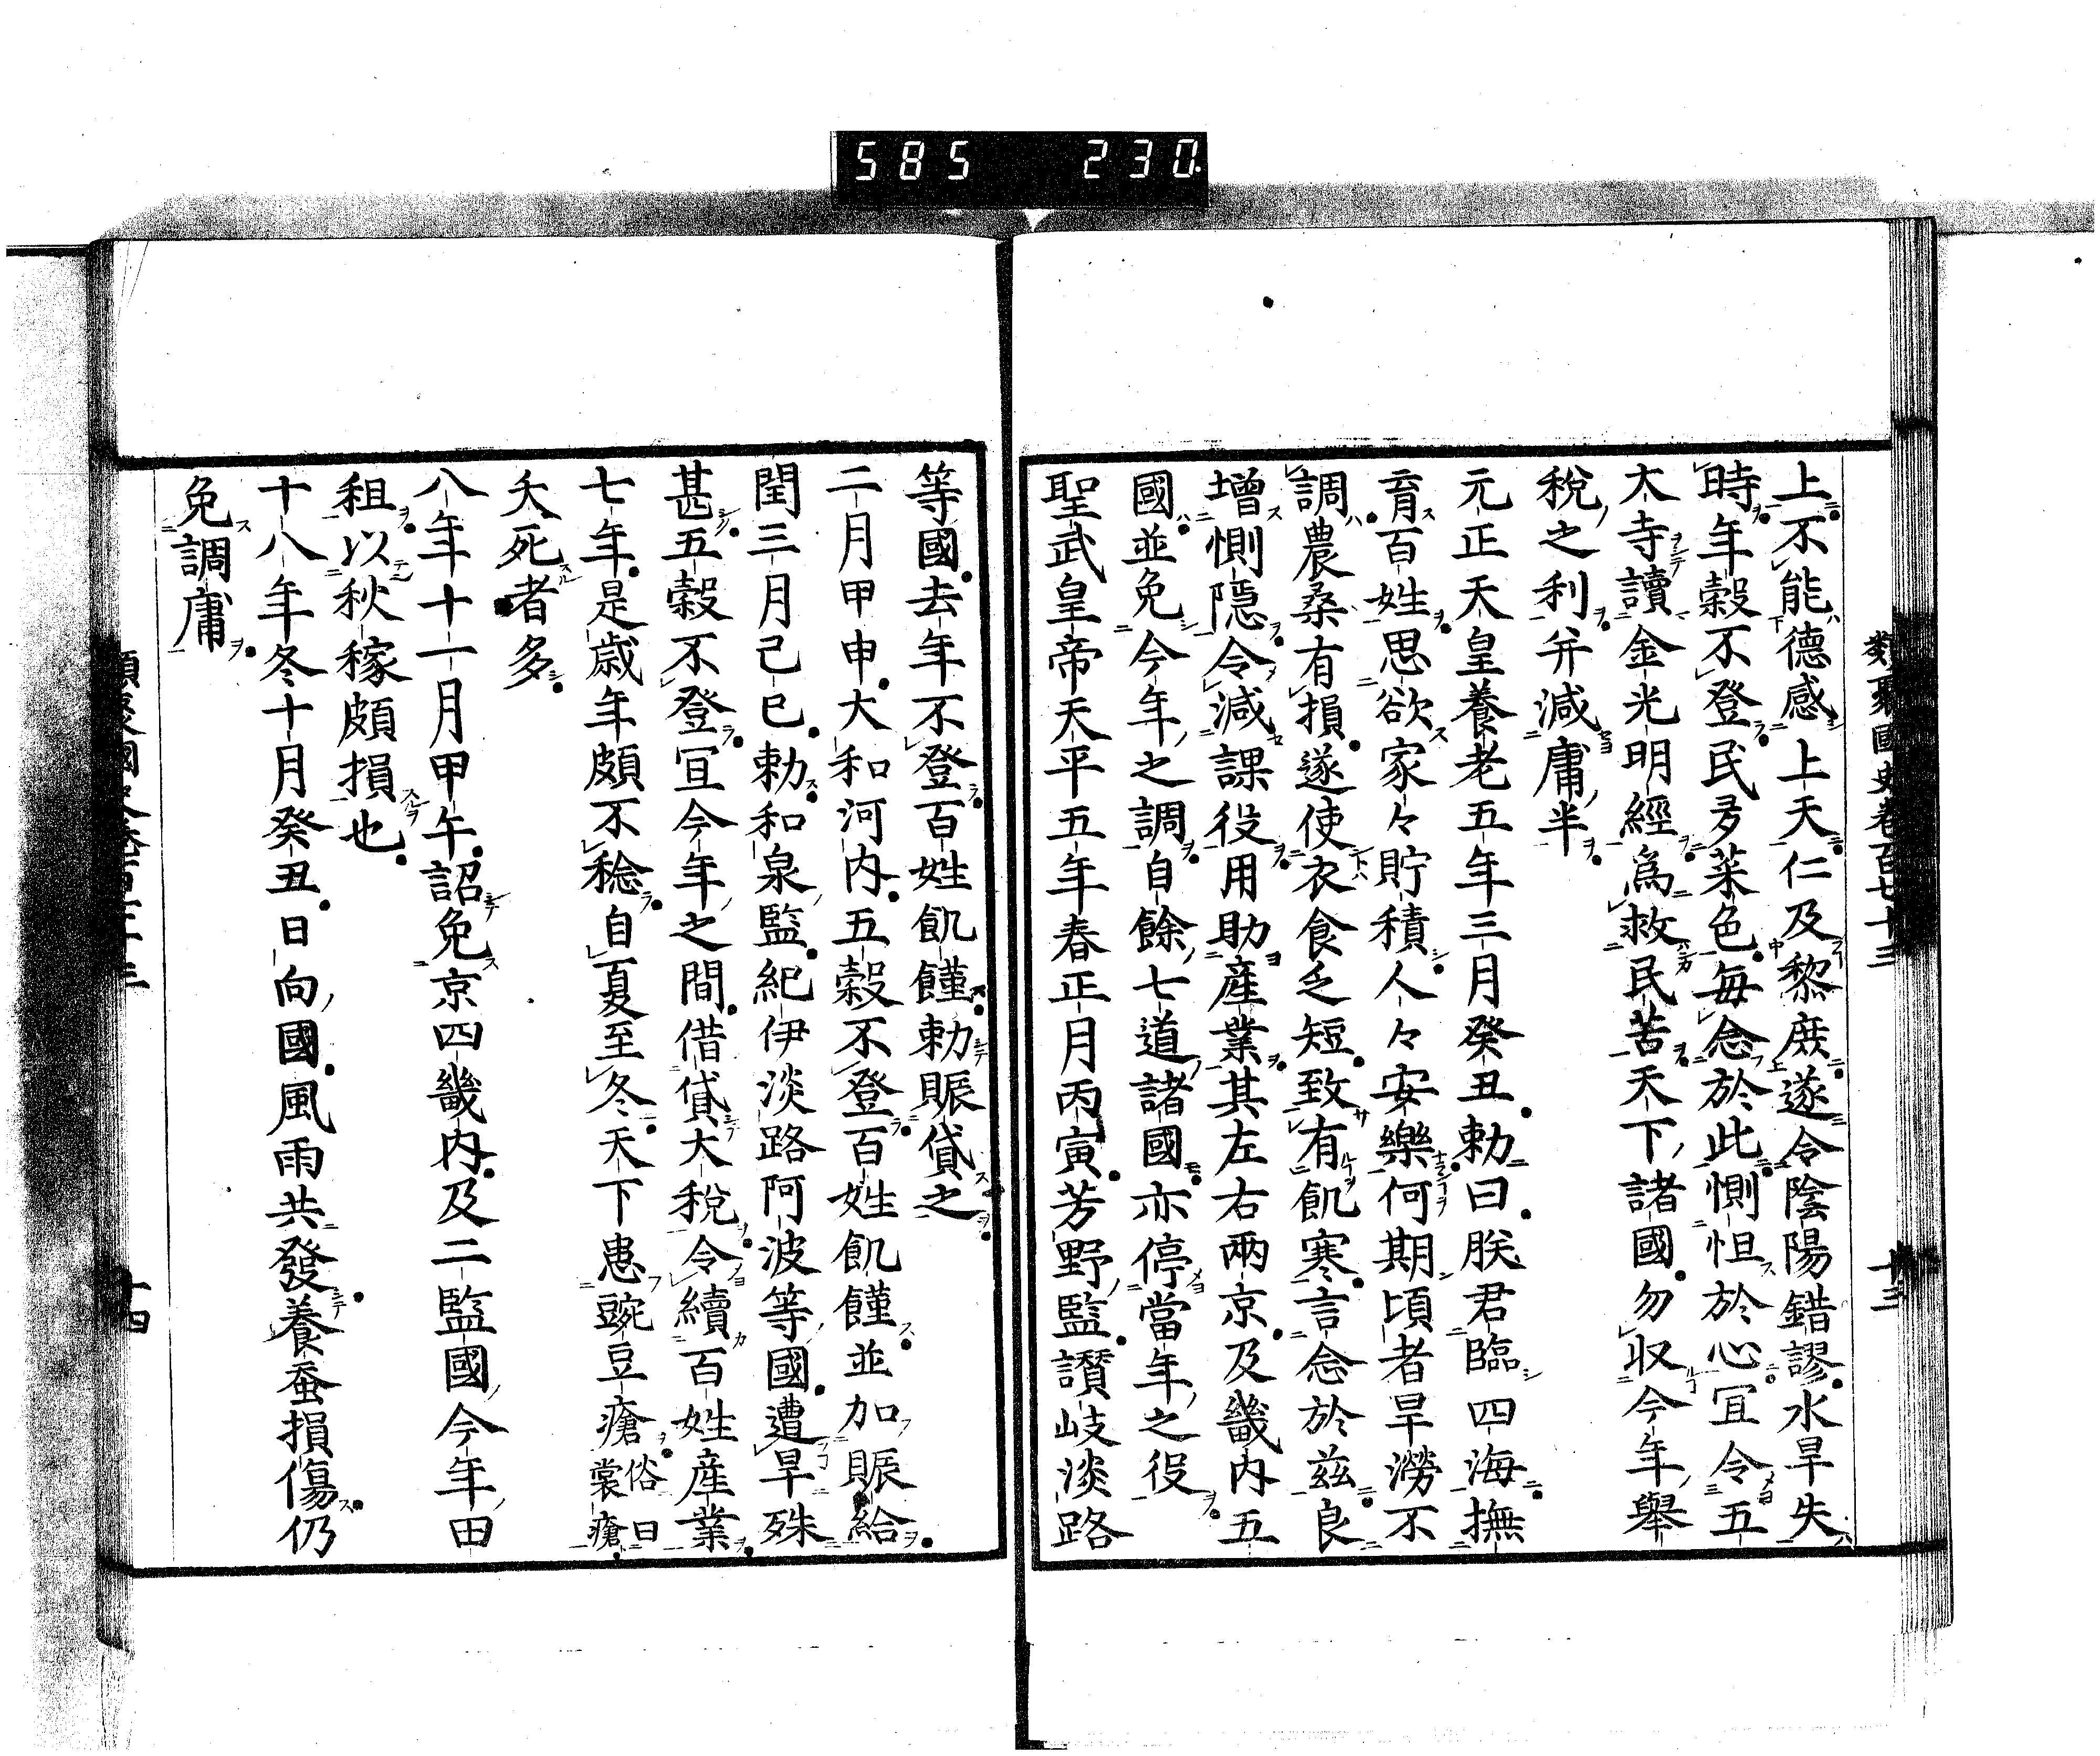 585 230
類聚國史卷百七十三 十三
上不能德感上天仁及黎庶遂令陰陽錯謬水旱失
時年穀不登民多菜色每念於此惻怛於心宜令五
大寺讀金光明經爲救民苦天下諸國勿收今年舉
稅之利并減庸半
元正天皇養老五年三月癸丑勅曰朕君臨四海撫
育百姓思欲家々貯積人々安樂何期頃者旱澇不
調農桑有損遂使衣食乏短致有飢寒言念於茲良
增惻隱令減課役用助產業其左右兩京及畿内五
國並免今年之調自餘七道諸國亦停當年之役
聖武皇帝天平五年春正月丙寅芳野監讚岐淡路
等國去年不登百姓飢饉勅賑貸之
二月甲申大和河内五穀不登百姓飢饉並加賑給
閏三月己巳勅和泉監紀伊淡路阿波等國遭旱殊
甚五穀不登宜今年之間借貸大稅令續百姓產業
七年是歲年頗不稔自夏至冬天下患豌豆瘡俗曰裳瘡
夭死者多
八年十一月甲午詔免京四畿内及二監國今年田
租以秋稼頗損也
十八年冬十月癸丑日向國風雨共發養蚕損傷仍
免調庸
類聚國史卷百七十三 十四